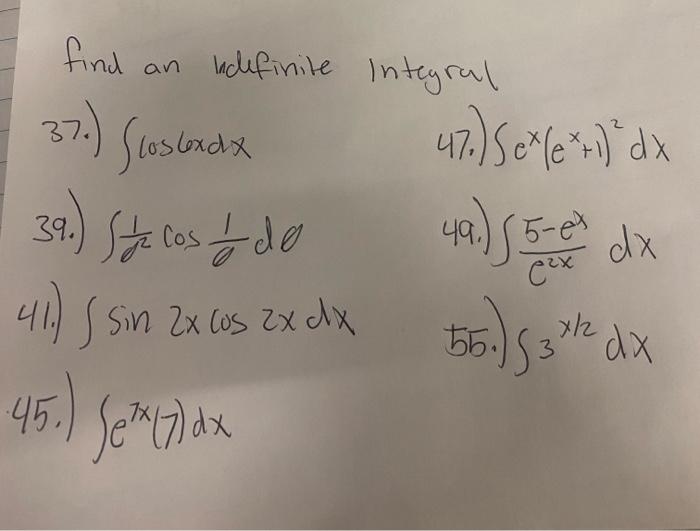 find an indefinite Integral
37.) ∫cos6xdx
39.) ∫ 1/θ² cos 1/θ dθ
41.) ∫ sin 2x cos 2x dx
45.) ∫e^7x(7)dx
47.) ∫e^x(e^x+1)² dx
49.) ∫ 5-e^x/e^2x dx
55.) ∫3^x/2 dx